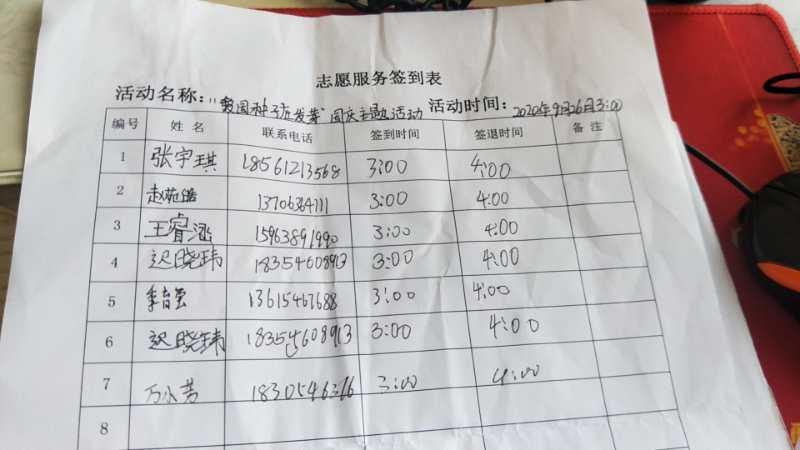 志愿服务签到表
活动名称："爱国种子在发芽"国庆主题活动 活动时间：2020年9月26日3:00
编号 姓名 联系电话 签到时间 签退时间 备注
1 张宇琪 18561213568 3:00 4:00
2 赵苑 3:00 4:00
3 王睿涵 15963891990 3:00 4:00
4 迟晓玮 18354608913 3:00 4:00
5 13615467688 3:00 4:00
6 迟晓玮 18354608913 3:00 4:00
7 万小芳 3:00 4:00
8